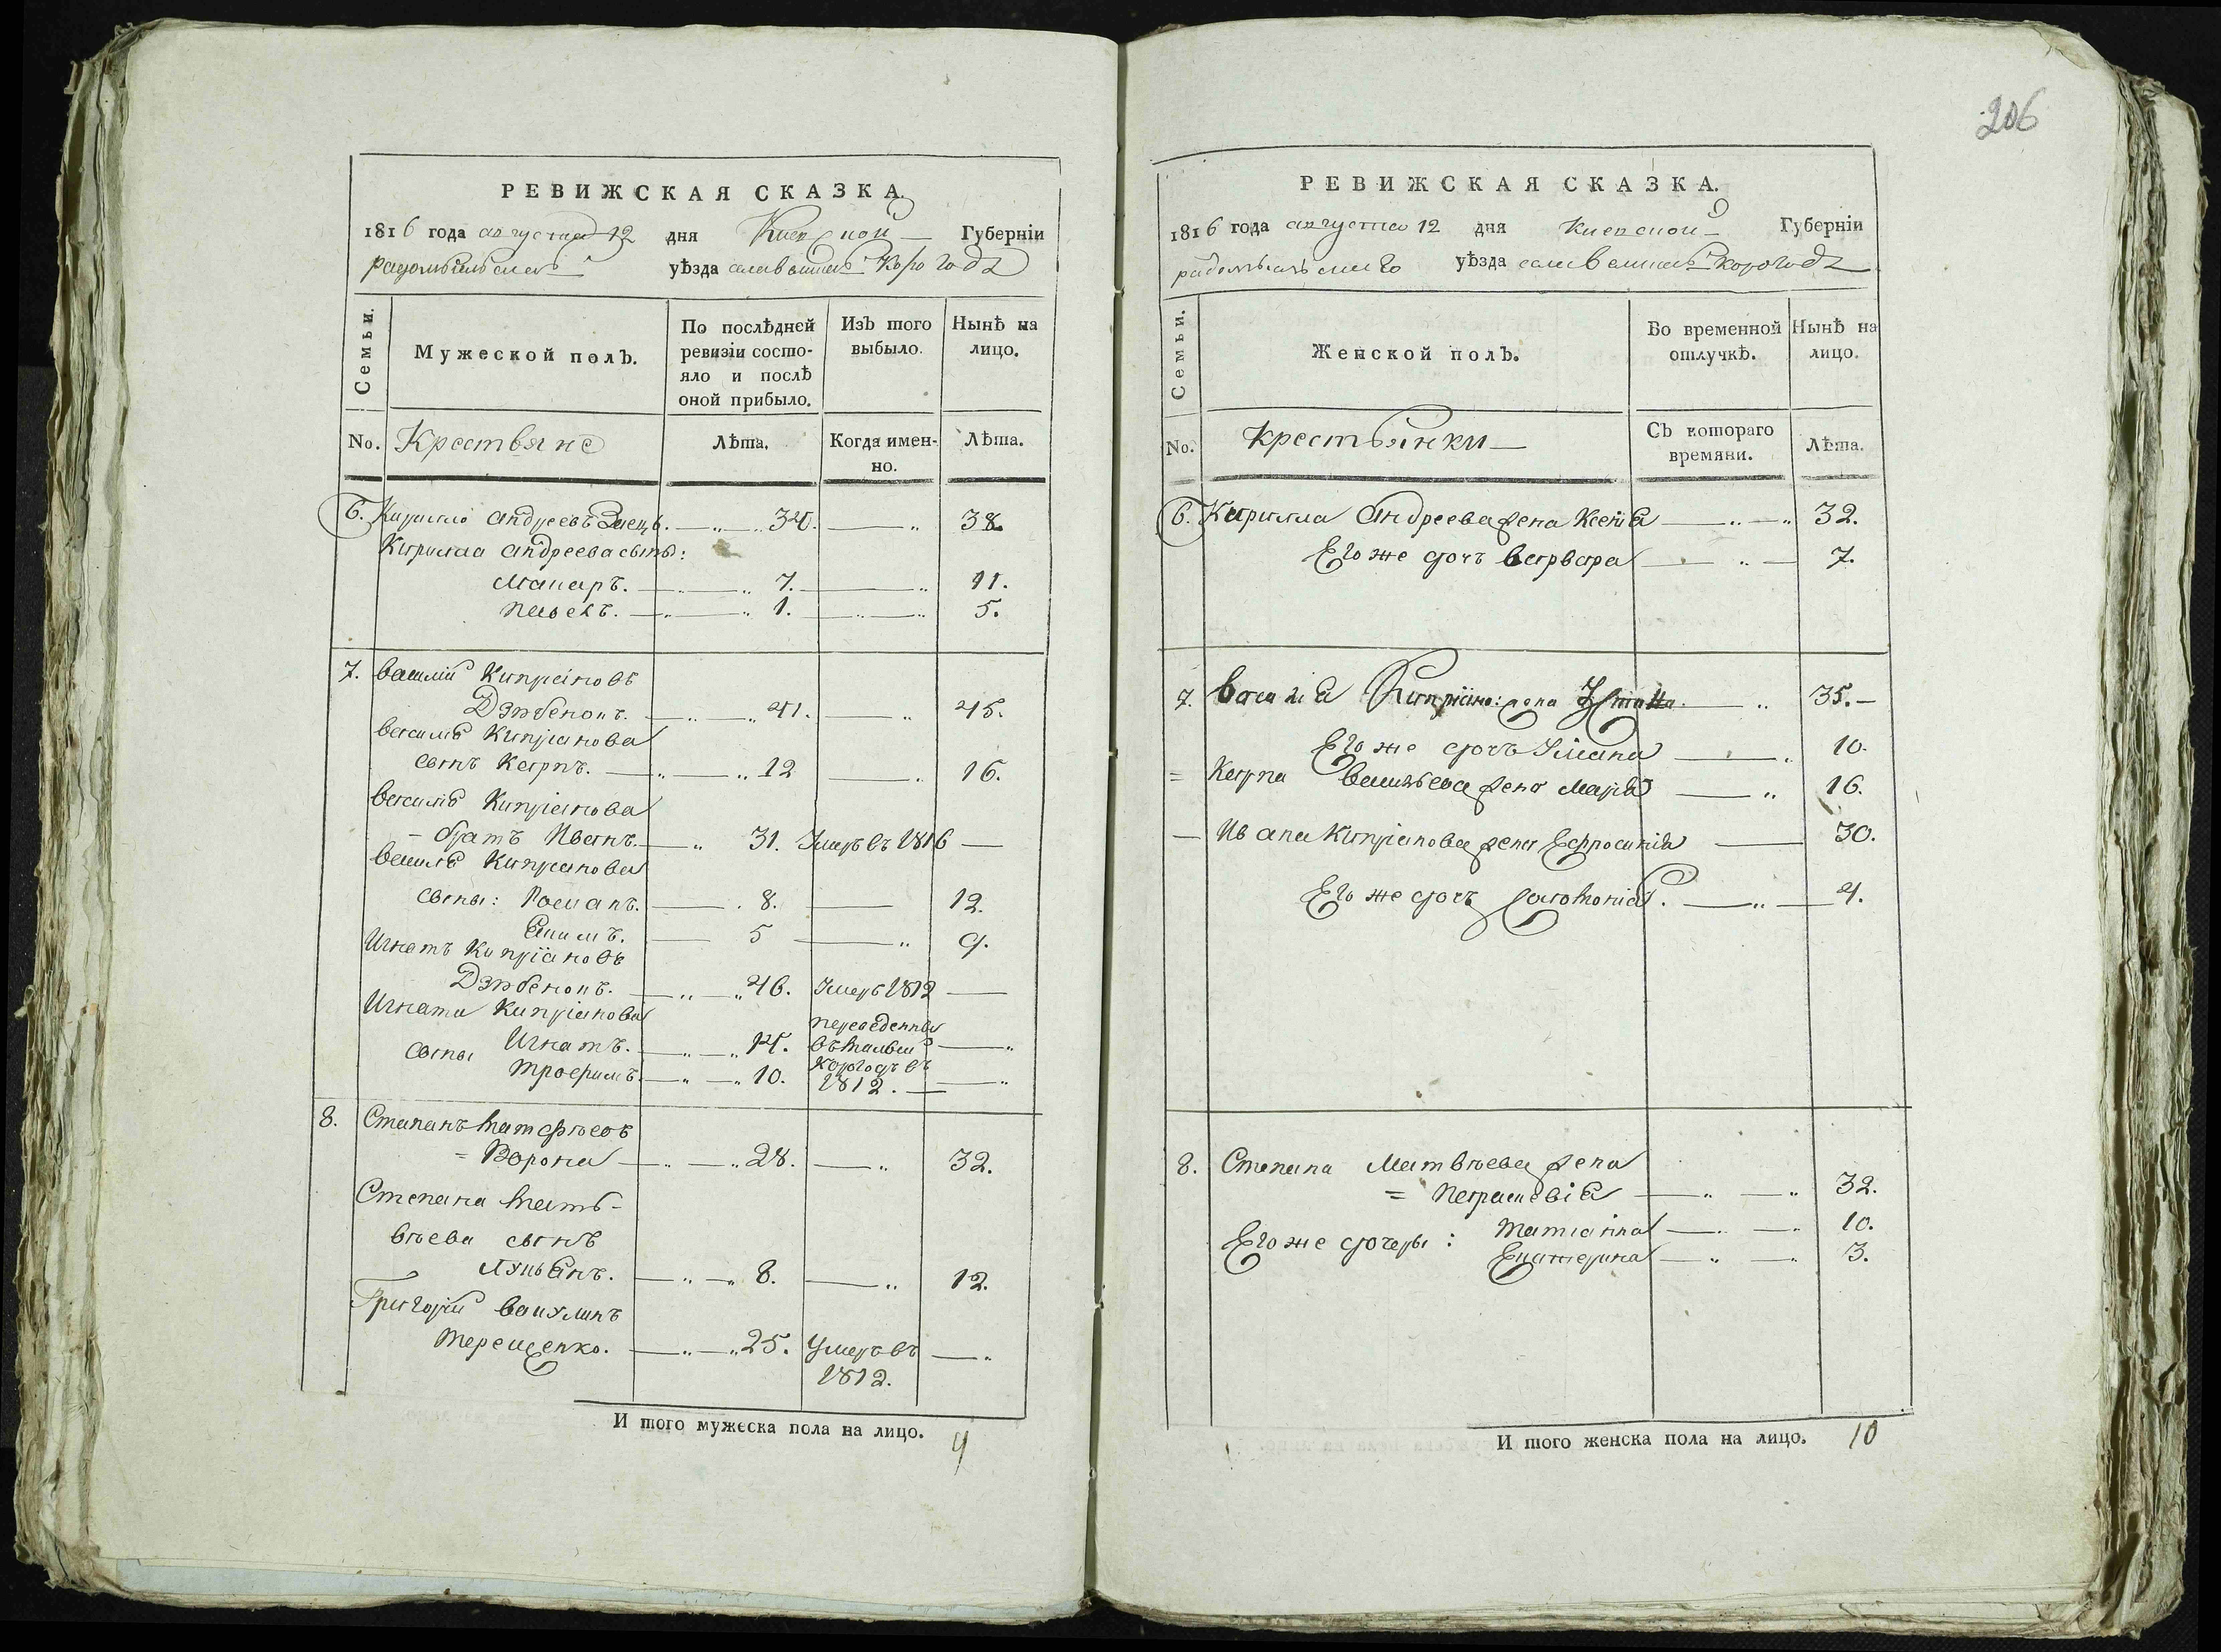 РЕВИЖСКАЯ СКАЗКА.
1816 года августа 12 дня Киевской Губерніи
радомысльскаго уѣзда села великаго Корогодъ
Семьи.
Мужеской полЪ.
По послѣдней ревизіи состо-
яло и послѣ
оной прибыло.
ИзЪ того
выбыло.
Нынѣ на
лицо.
No. Крестьяне
Лѣта.
Когда имен-
но.
Лѣта.
6. Кирило Андреевъ Заецъ. 34. 38.
Кирила Андреева сыны:
Макаръ. 7. 11.
Павелъ. 1. 5.
7. Василій Кипріановъ
41. 45.
Василія Кипріанова
сынъ Карпъ. 12 16.
Василія Кипріанова
братъ Иванъ. 31. Умеръ въ 1816
Василія Кипріанова
сыны: Романъ. 8. 12.
5 9.
Игнатъ Кипріановъ
46. Умеръ 1812
Игната Кипріанова
сыны Игнатъ. 14. переведенны
въ малый
Трофимъ. 10. Корогодъ въ
1812.
8. Степанъ Матфѣевъ
Ворона 28. 32.
Степана Мать-
вѣева сынъ
Лукьянъ. 8. 12.
Григорій
Терещенко. 25. Умеръ въ
1812.
И того мужеска пола на лицо. 9
206
РЕВИЖСКАЯ СКАЗКА.
1816 года августа 12 дня Киевской Губерніи
радомысльскаго уѣзда села великаго Корогодъ
Семьи.
Женской полЪ.
Во временной
отлучкѣ.
Нынѣ на
лицо.
No. Крестьянки
СЪ котораго
времяни.
Лѣта.
6. Кирилла Андреева жена Ксенія 32.
Его же дочь Варвара 7.
7. Василія Кипріано: жена 35.
Его же дочь Уліана 10.
Карпа Васильева жена Марія 16.
Ивана Кипріанова жена Ефросинія 30.
Его же дочь 4.
8. Степана Матвѣева жена
Параскевія 32.
Его же дочеры: Татіанна 10.
Екатерина 3.
И того женска пола на лицо. 10